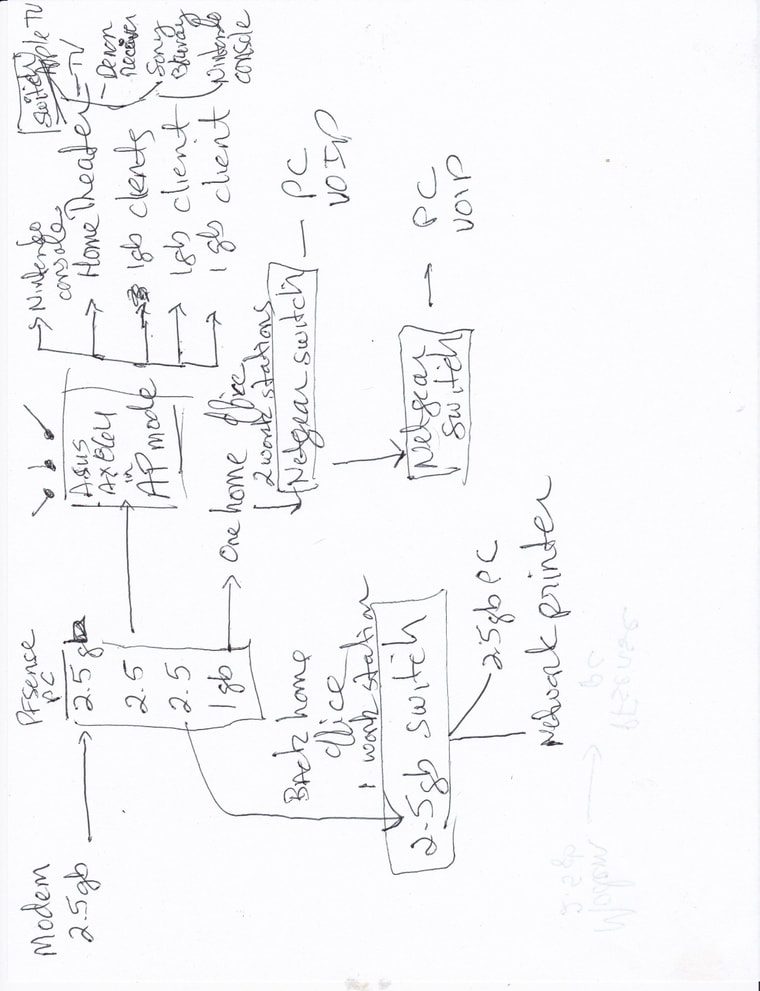 Modem
2.5gb
Pfsence
PC
2.5gb
2.5
2.5
1gb
Asus
AX86U
in
AP mode
Nintendo
console
Home Theater
Switch
Apple TV
TV
Denon
Receiver
Sony
Bluray
Nintendo
console
1gb clients
1gb client
1gb client
One home office
2 work stations
Netgear switch
PC
VOIP
Netgear
Switch
PC
VOIP
Back home
office
1 work station
2.5gb switch
2.5gb PC
Network printer